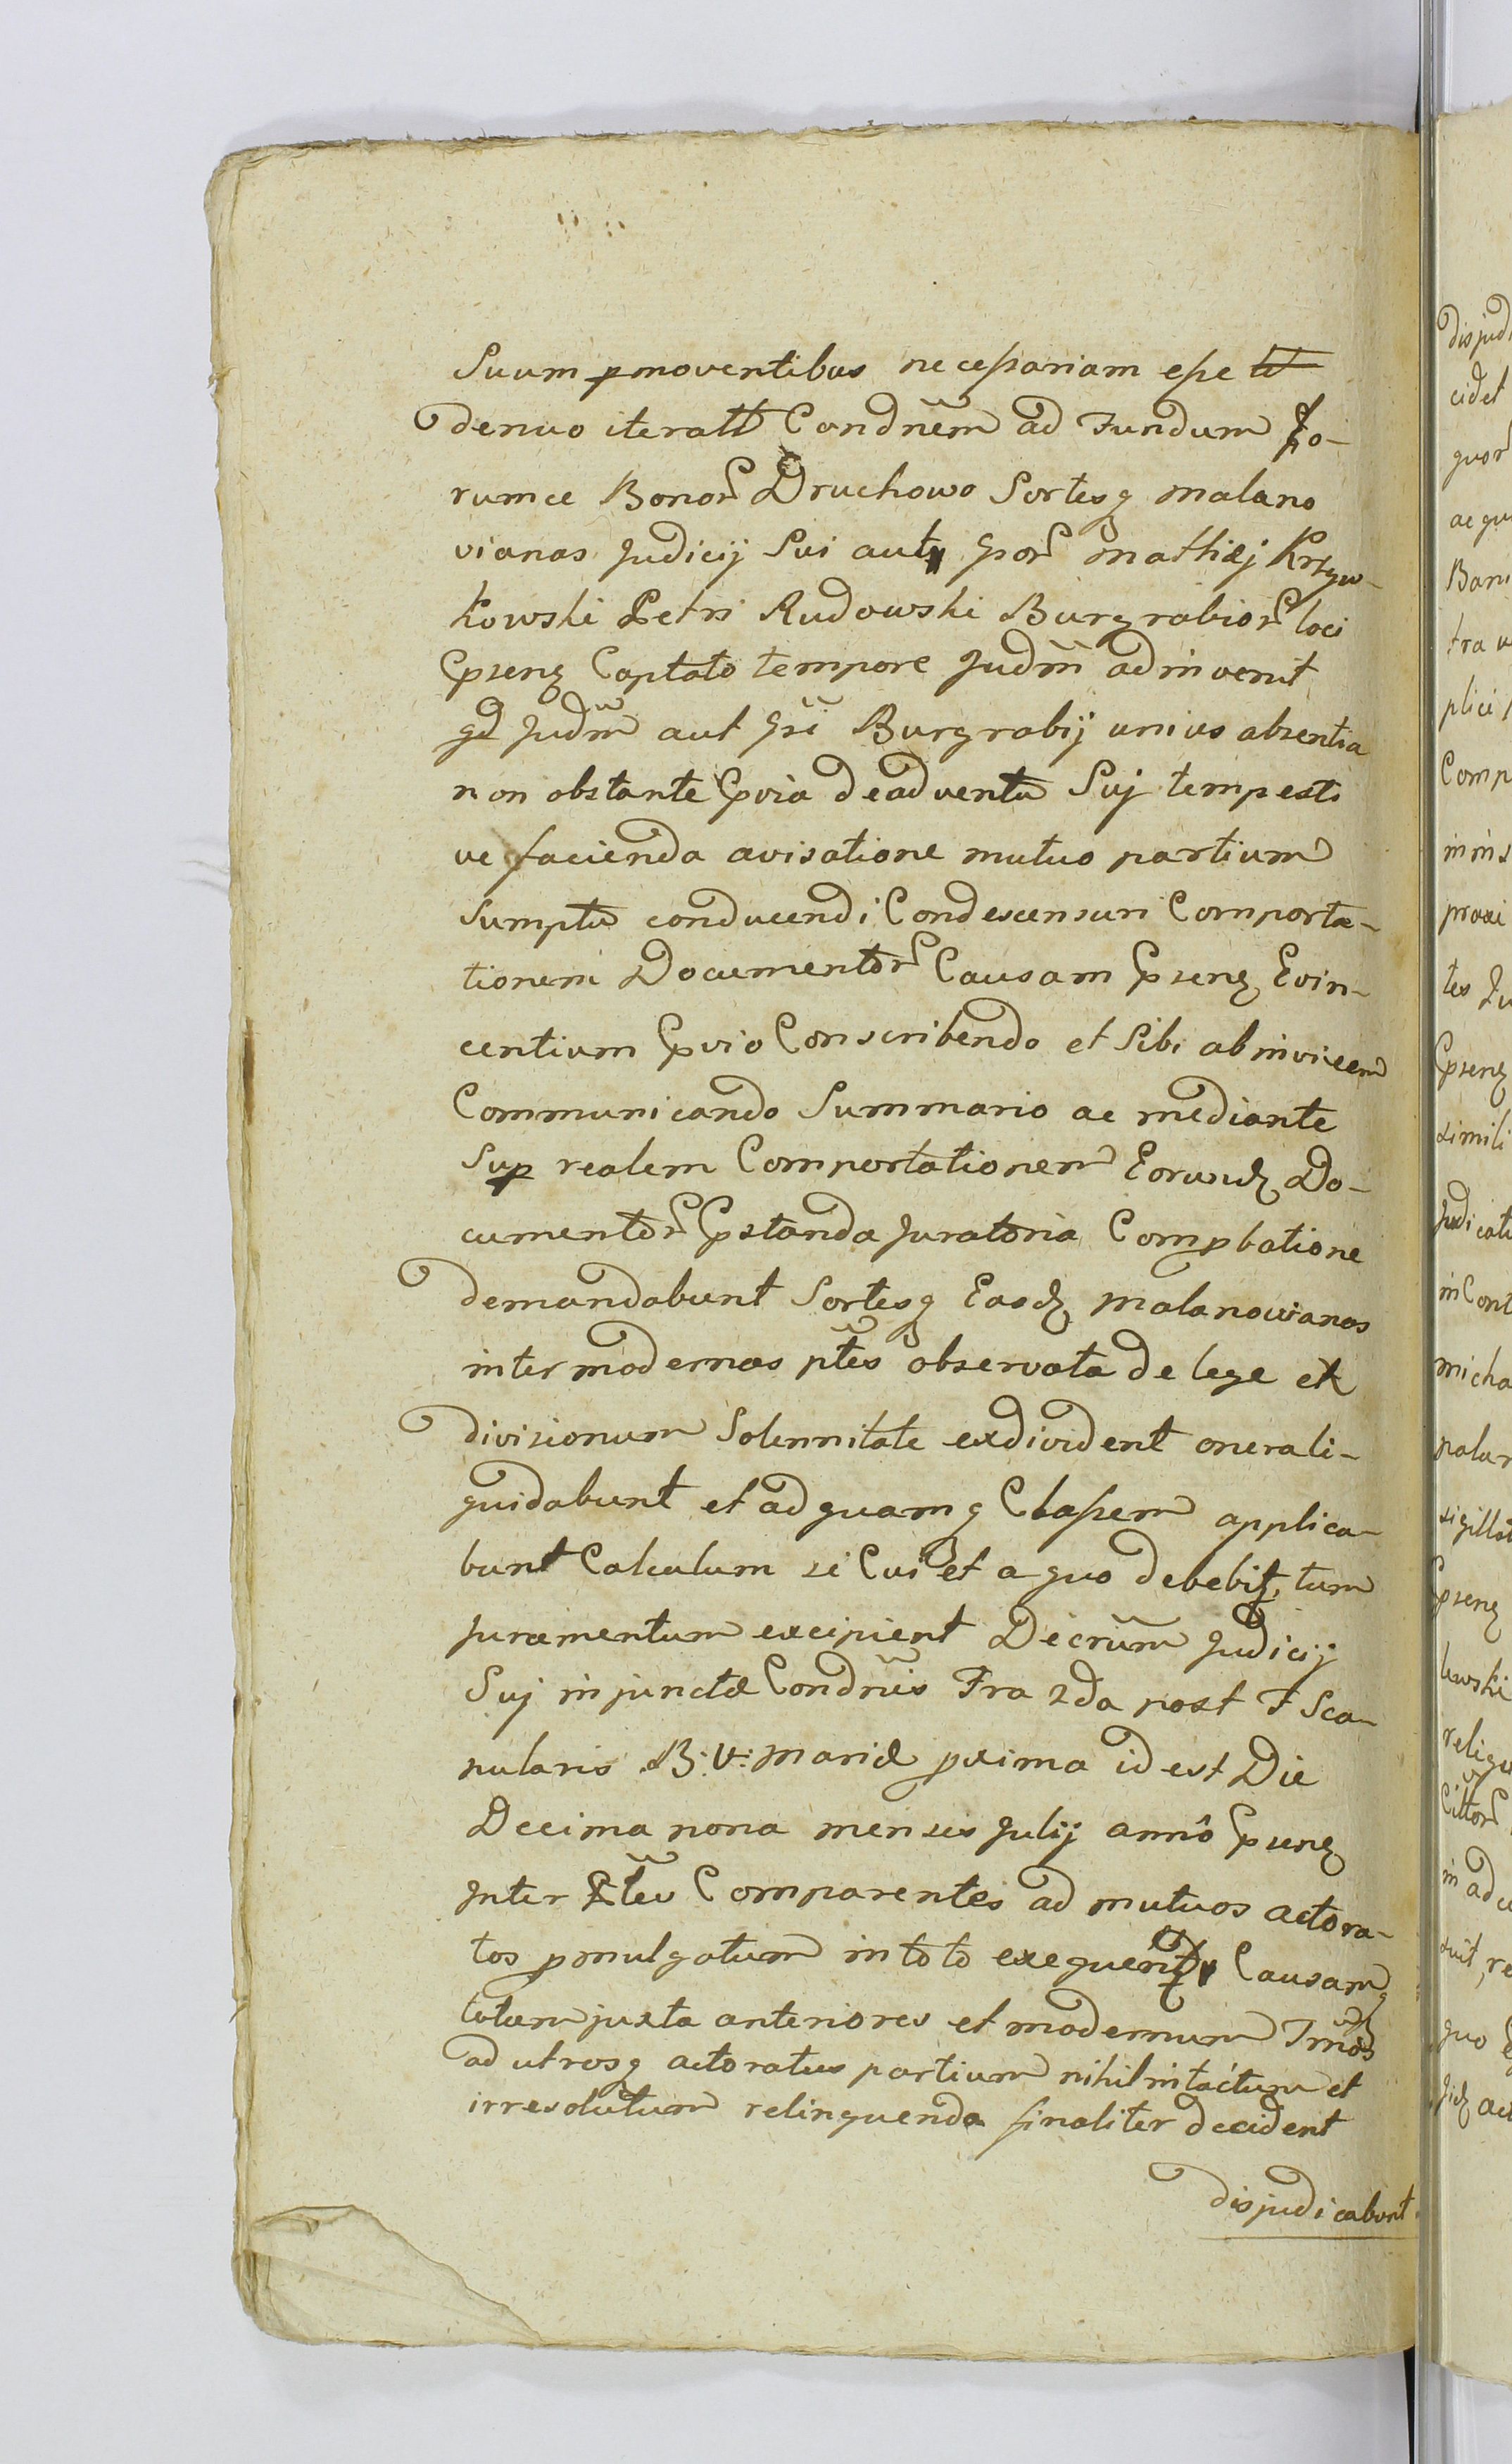 Suum pmoventibus necessariam esse
denuo iteratt Condnem ad Fundum Eo-
rumce Bonor Druchowo Sortesq malano
vianas Judicij Sui aut Gsor Mathiæj Krzyw-
kowski Petri Rudowski Burgrabior loci
Psenq Captato tempore Judm adinvenit
qd Judm aut Gsi Burgrabij unius absentia
non obstante Pvia de adventu Suj tempesti
ve facienda avisatione mutuo partium
Sumptu conducendi Condescensuri Comporta-
tionem Documentor Causam Psenq Evin-
centium Pvio Conscribendo et Sibi abinvicem
Communicando Summario ac mediante
Sup realem Comportationem Eorundq Do-
cumentor Pstanda Juratoria Compbatione
demandabunt Sortesq Easdq Malanovianas
inter modernas ptes observata de lege
divisionum Solennitate exdivident onera li-
quidabunt et ad quamq Classem applica-
bunt Calculum si Cui et a quo debebit, tum
Juramentum excipient Decrum Judicij
Suj injunctæ Condnis Fra 2da post F Sca-
pularis B: V: Mariæ pxima id est Die
Decima nona mensis Julij anno Psenq
Inter Ptes Comparentes ad mutuos actora-
tos pmulgatum in toto exequent Causamq
totam juxta anteriores et modernum Tmos
ad utrosq actoratus partium nihil intactum et
irresolutum relinquenda finaliter decident
disjudicabunt
disjud
cidet
quor
ac qu
Bon
tra
plici
Comp
inins
proxi
tes Ju
Psenq
simili
Judicati
in Cont
micha
palar
sigillat
Psenq
lewski
reliqu
Cittor
in ad
quo